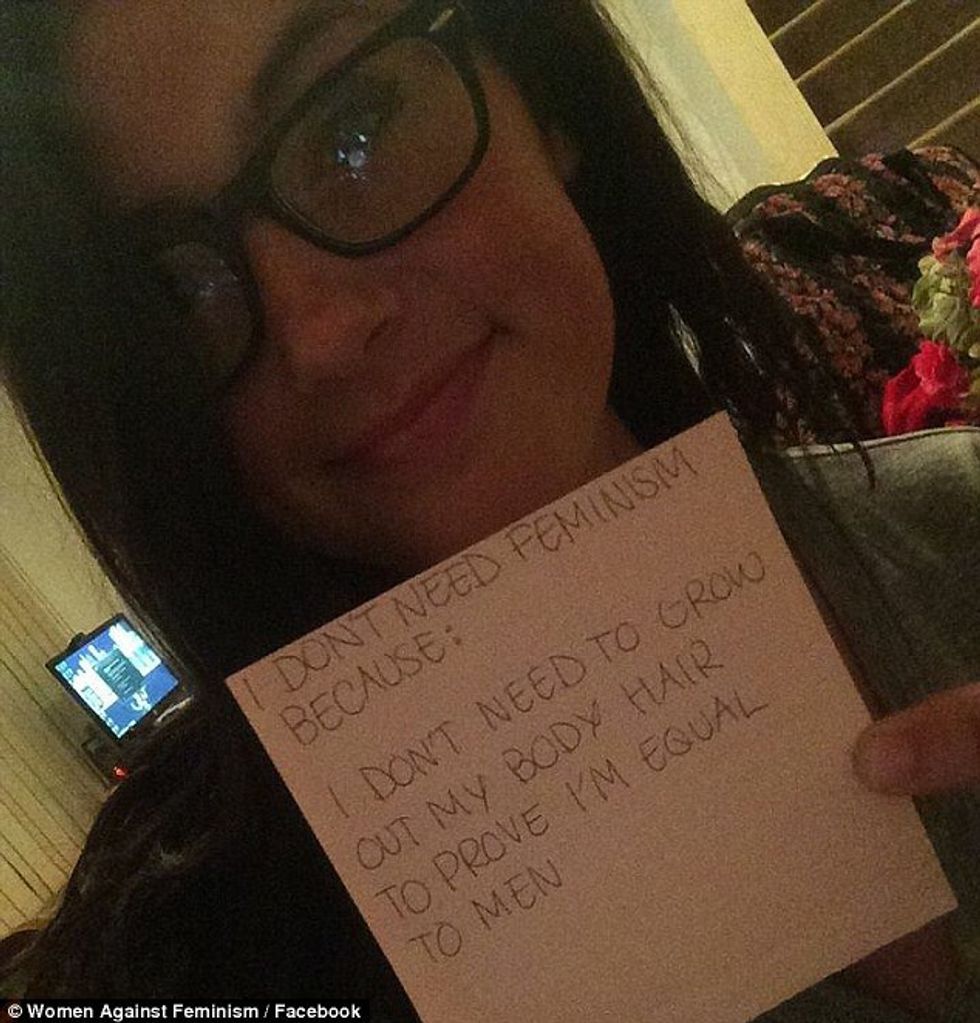 I DON'T NEED FEMINISM
BECAUSE:
I DON'T NEED TO GROW
OUT MY BODY HAIR
TO PROVE I'M EQUAL
TO MEN
© Women Against Feminism / Facebook